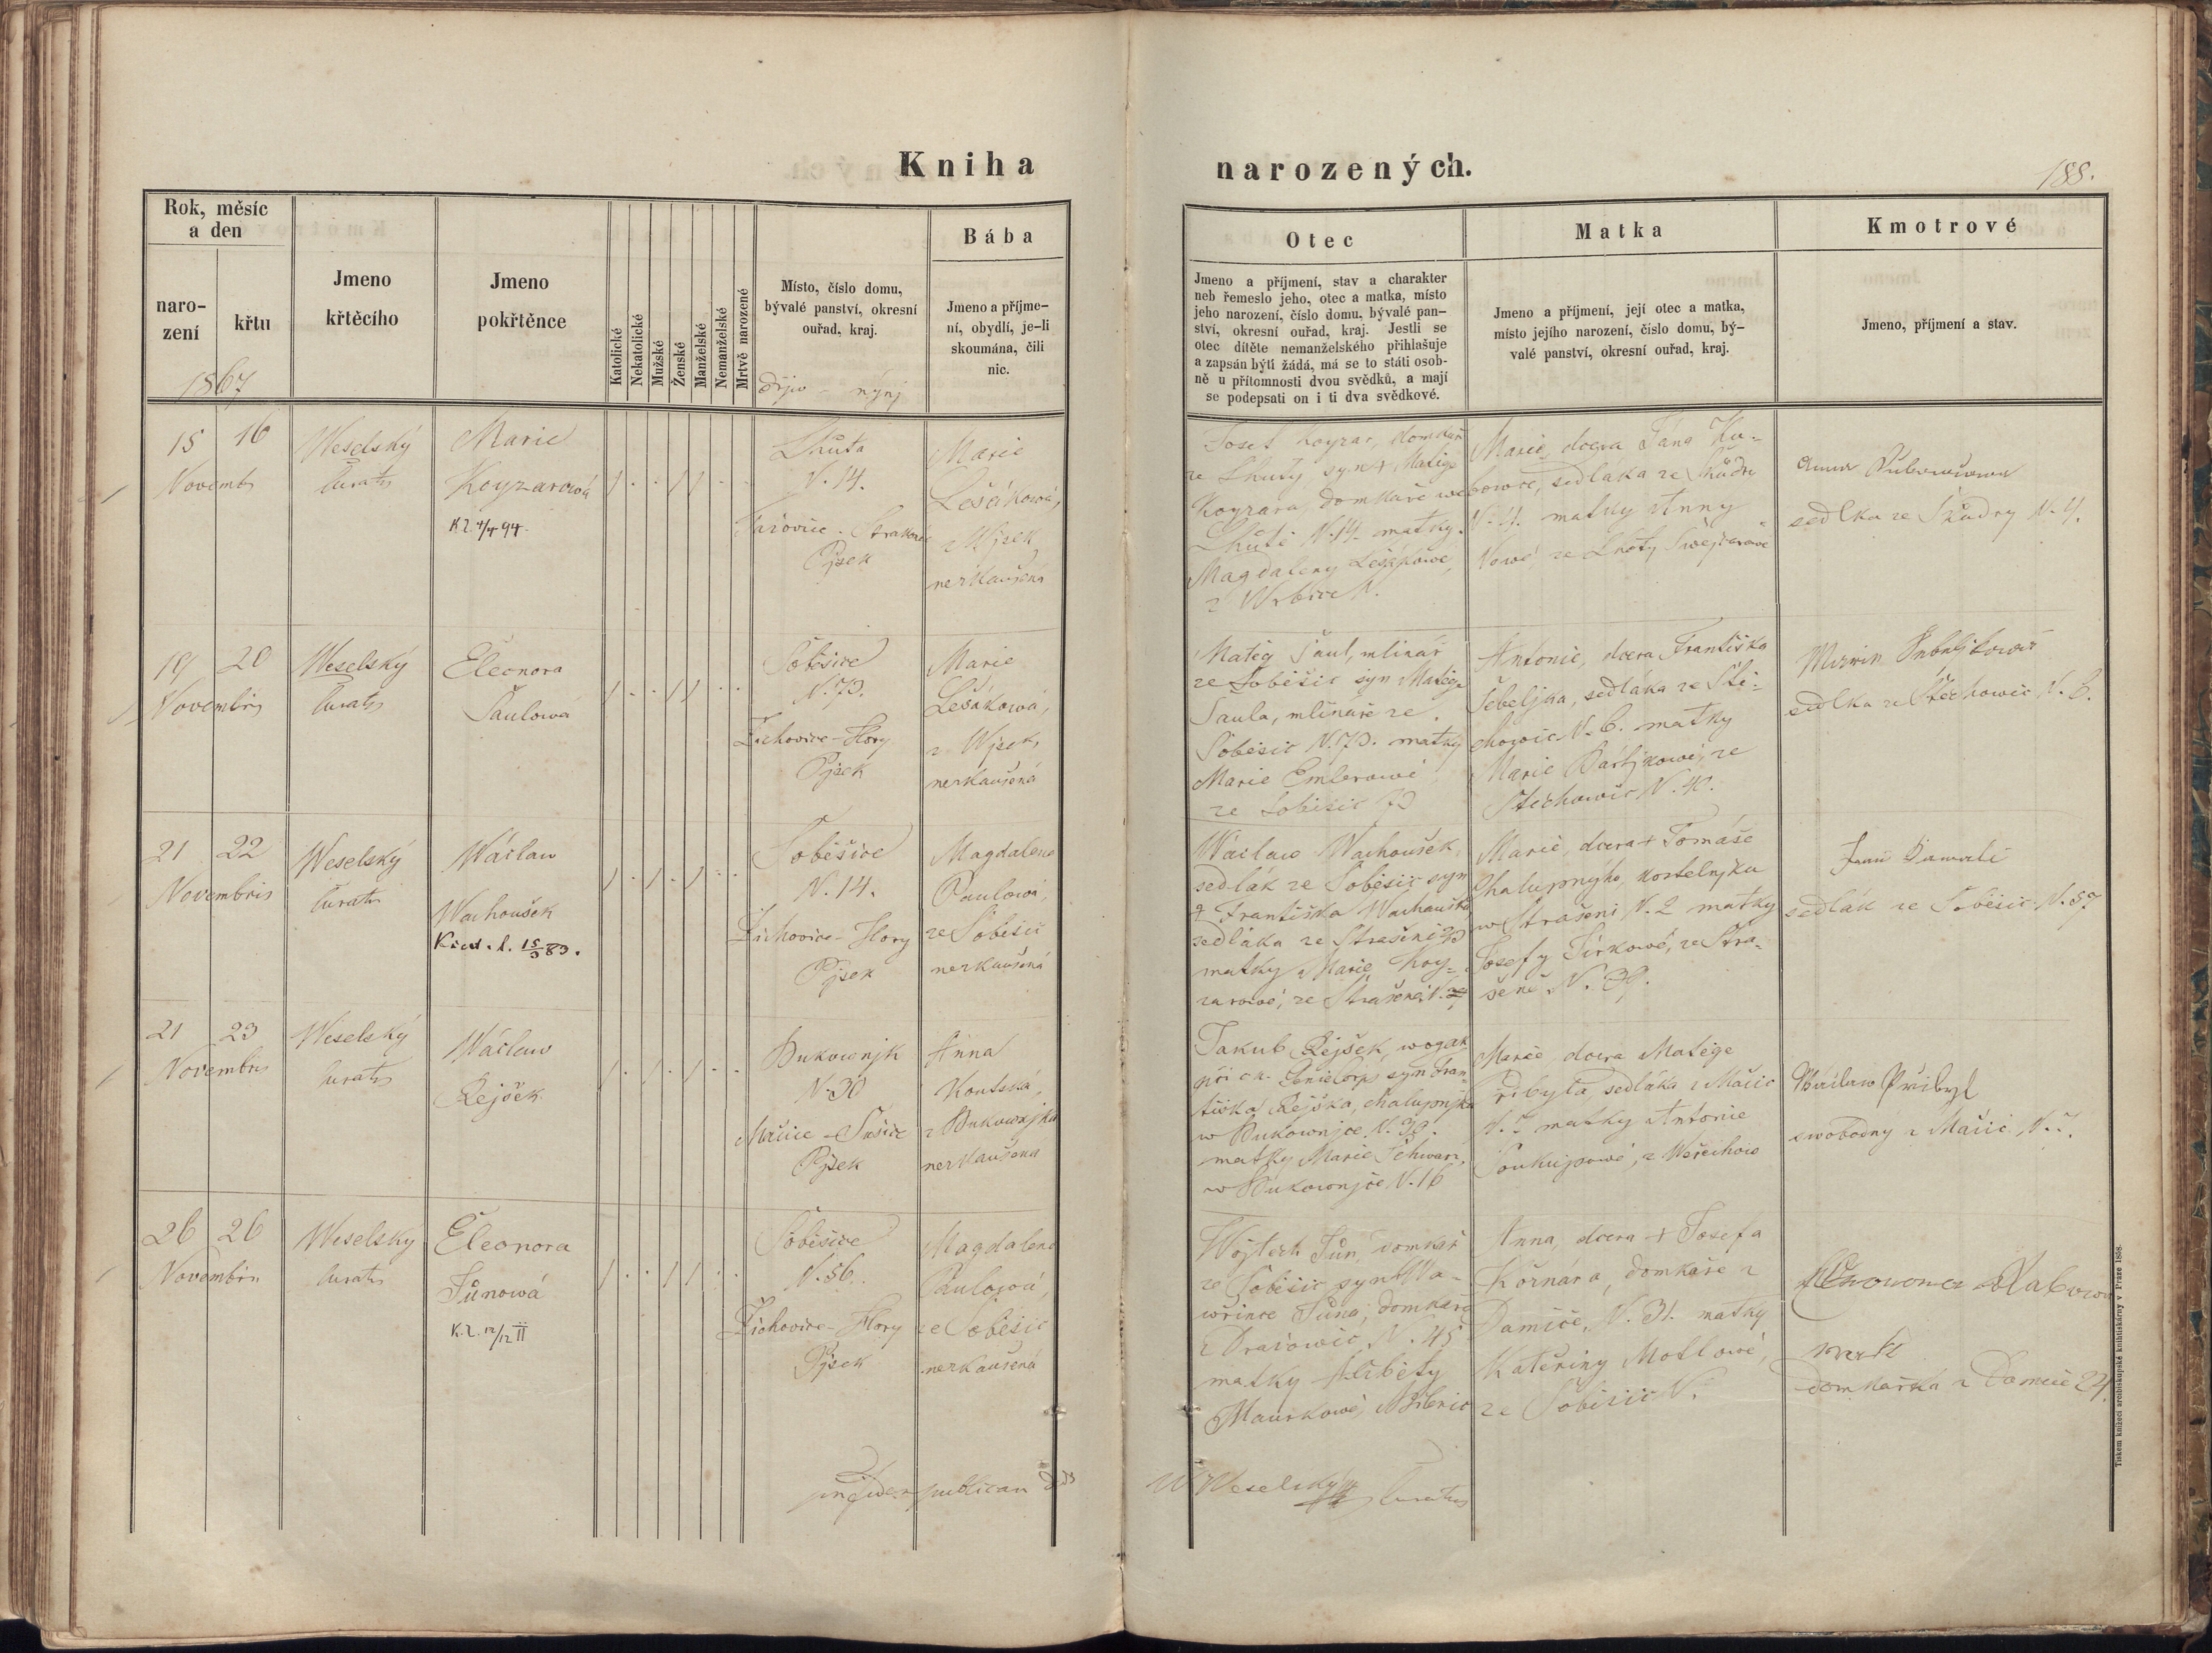 Kniha
narozených.
188.
Rok, měsíc
a den
naro-
zení
křtu
1867
Jmeno
křtěcího
Jmeno
pokřtěnce
Katolické
Nekatolické
Mužské
Ženské
Manželské
Nemanželské
Mrtvě narozené
Místo, číslo domu,
bývalé panství, okresní
ouřad, kraj.
nýnj
Bába
Jmeno a příjme-
ní, obydlí, je-li
skoumána, čili
nic.
Otec
Jmeno a příjmení, stav a charakter
neb řemeslo jeho, otec a matka, místo
jeho narození, číslo domu, bývalé pan-
ství, okresní ouřad, kraj. Jestli se
otec dítěte nemanželského přihlašuje
a zapsán býti žádá, má se to státi osob-
ně u přítomnosti dvou svědků, a mají
se podepsati on i ti dva svědkové.
Matka
Jmeno a příjmení, její otec a matka,
místo jejího narození, číslo domu, bý-
valé panství, okresní ouřad, kraj.
Kmotrové
Jmeno, příjmení a stav.
15 16
Novembr
Weselský
Curatus
Marie
Koyzarowá
Lhůta
N. 14.
Pjsek
Marie
Lešáková,
z Wjsek
nezkaušená
Josef Koyzar, domkař
ze Lhuty, syn + Matěge
Koyzara, domkaře we
Lhůtě N. 14. matky
Magdaleny Lešákowé,
z Wrbice N.
Marie, dcera Jána Ku-
bowce, sedláka ze
N. 4. matky Anny
ze Lhoty
Anna
sedlka ze N. 4.
19 20
Novembris
Weselský
Curatus
Eleonora
Paulowa
Soběšice
N. 73.
Žichovice - Hory
Pjsek
Marie
Lešákowá,
z Wjsek,
nezkaušená
Matěg Paul, mlinář
ze Soběšic syn Matěge
Paula, mlináře ze
Soběšic N. 73. matky
Marie Emlerowé
ze Soběšic 73
Antonie, dcera Františka
Šebeljka, sedláka ze Stě-
chowic N. 6. matky
Marie Bártjkowé, ze
Stěchowic N. 40.
sedlka ze Stěchowic N. 6.
21 22
Novembris
Weselský
Curatus
Wáclaw
Wachoušek
Soběšice
N. 14.
Žichovice - Hory
Pjsek
Magdalena
Paulowá,
ze Soběšic
nezkaušená
Wáclaw Wachoušek
sedlák ze Soběšic syn
+ Františka Wachouška
sedláka ze Strašeni 23
matky Marie Koy-
zarowé, ze Strašeně N.
Marie, dcera + Tomáše
Chalupnýho, kostelnjka
w Strašeni N. 2 matky
Josefy Jirkowé, ze Stra-
šeně N. 39.
Jan
sedlák ze Soběšic N. 57
21 23
Novembris
Weselský
Curatus
Wáclaw
Rejšek
Bukownjk
N. 30
Mačice - Sušice
Pjsek
Anna
Koutská,
z Bukownjka
nezkaušena
Jakub Rejšek, wogák
při c. k. Genie Corps syn Fran-
tiška Rejška, chalupnjka
w Bukownjce N. 30.
matky Marie Schwarz,
w Bukownjce N. 16
Marie, dcera Matěge
Přibyla, sedláka z Mačic
N. 7 matky Antonie
Soukupowé, z Weřechow
Wáclaw Přibyl
swobodny z Mačic N. 7.
26 26
Novembris
Weselský
Curatus
Eleonora
Jůnowá
Soběšice
N. 56.
Žichovice - Hory
Pjsek
Magdalena
Paulowá,
ze Soběšic
nezkaušená
Wojtech Jůn, domkař
ze Soběšic syn Wa-
wřince Jůna, domkaře
z Dražowic, N. 45
matky Alžběty
Maurkowé,
Anna, dcera + Josefa
Kořnára, domkaře z
Damíče, N. 31. matky
Kateřiny Motlowé,
ze Soběšic N.
domkařka z Damíče 24.
publican
W Weselský
Curatus
Tiskem knížecí arcibiskupské knihtiskárny v Praze 1858.